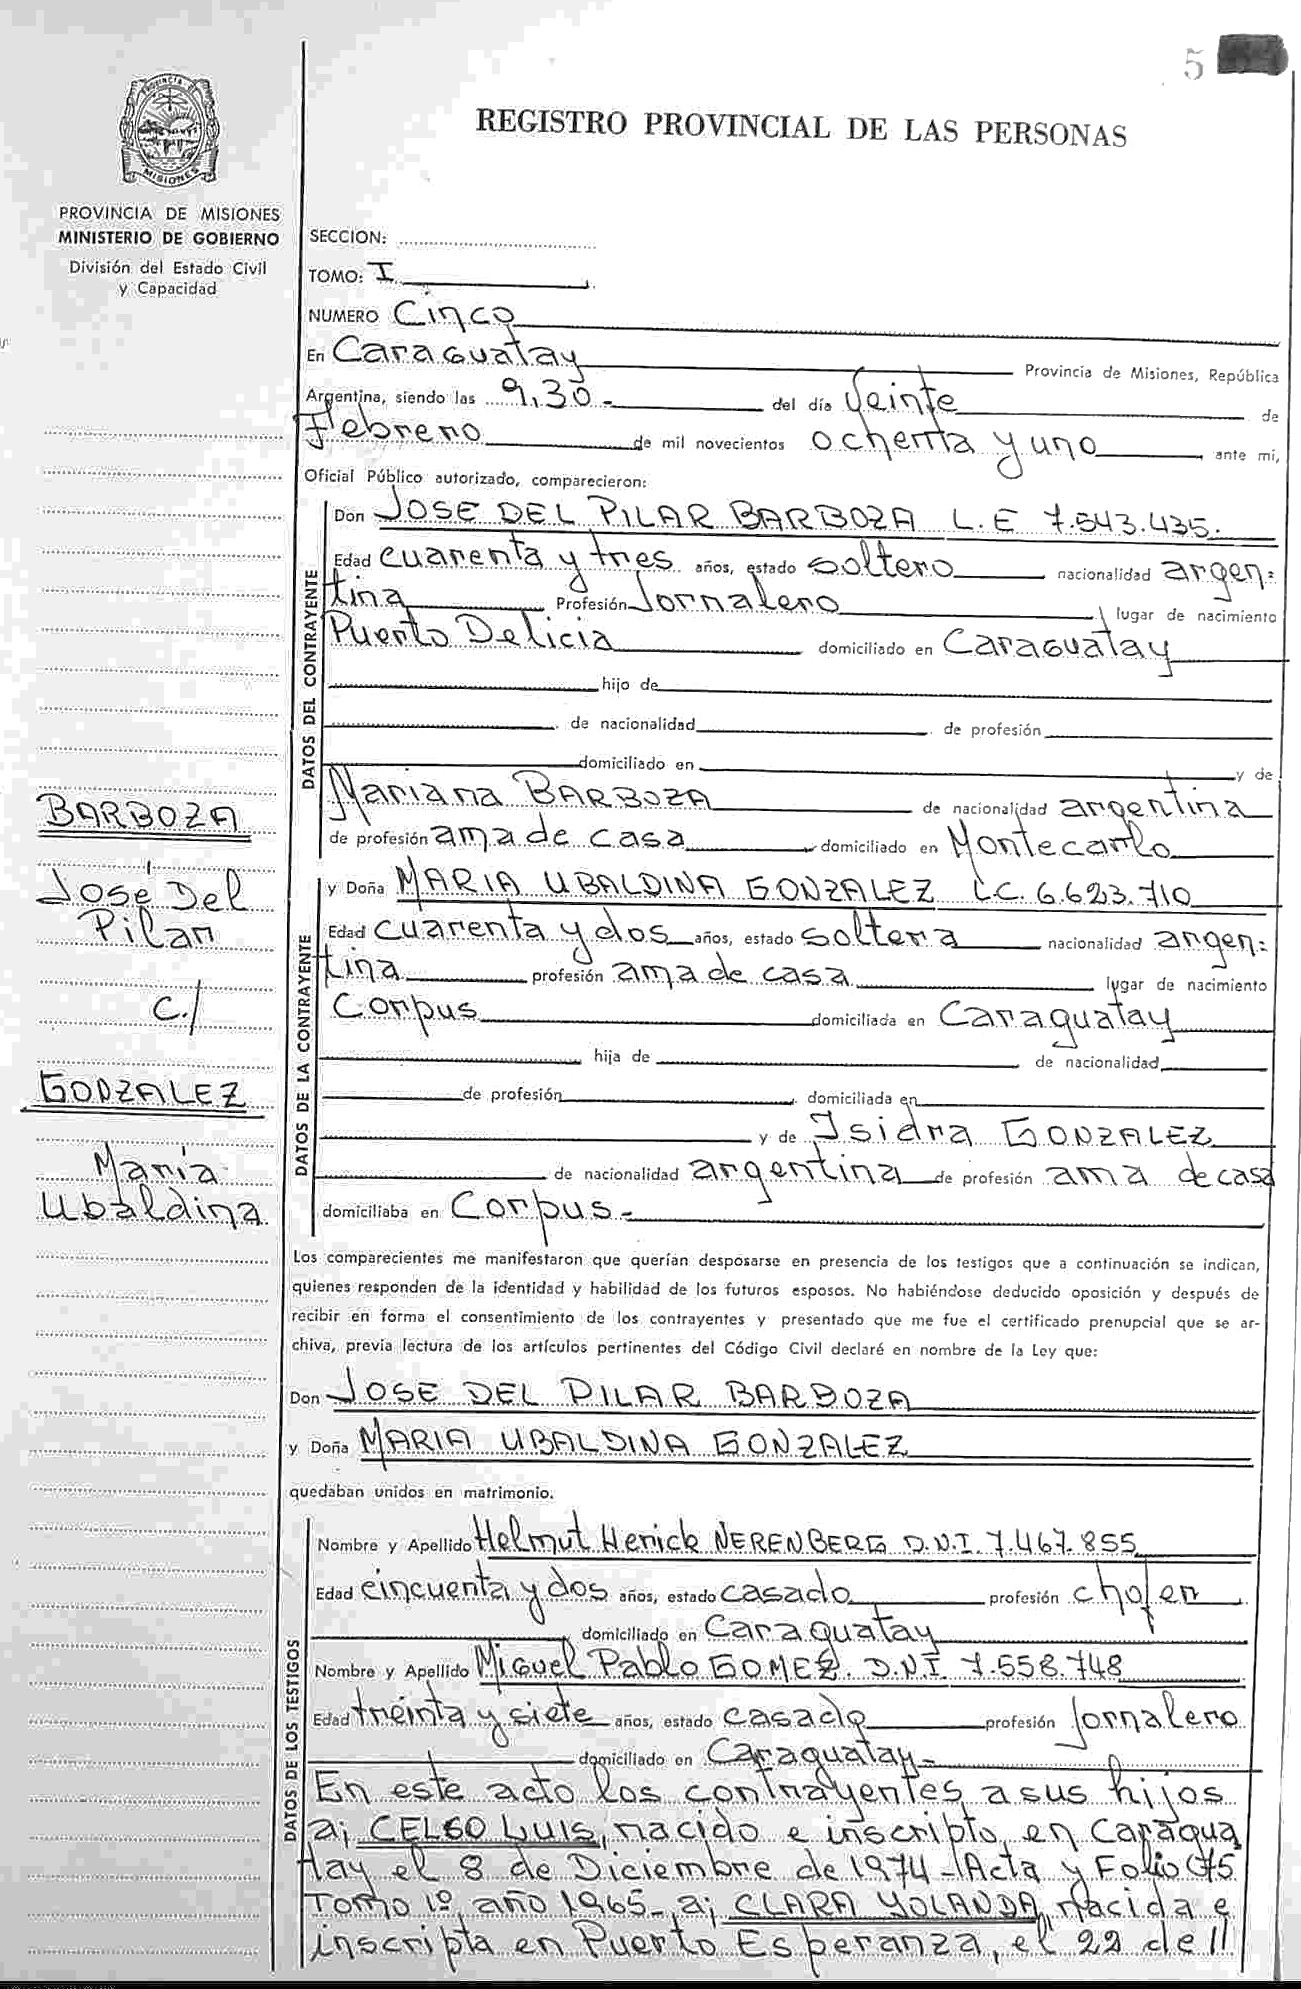 5
REGISTRO PROVINCIAL DE LAS PERSONAS
PROVINCIA DE
MISIONES
PROVINCIA DE MISIONES
MINISTERIO DE GOBIERNO
División del Estado Civil
y Capacidad
SECCION:
TOMO: I
NUMERO Cinco
En Caraguatay Provincia de Misiones, República
Argentina, siendo las 9,30- del día Veinte de
Febrero de mil novecientos ochenta y uno ante mi,
Oficial Público autorizado, comparecieron:
DATOS DEL CONTRAYENTE
Don JOSE DEL PILAR BARBOZA L.E 7.543.435.
Edad cuarenta y tres años, estado soltero nacionalidad argen=
tina Profesión Jornalero lugar de nacimiento
Puerto Delicia domiciliado en Caraguatay
hijo de
de nacionalidad de profesión
domiciliado en y de
Mariana BARBOZA de nacionalidad argentina
de profesión ama de casa domiciliado en Montecarlo
BARBOZA
José Del
Pilar
c./
GONZALEZ
María
Ubaldina
DATOS DE LA CONTRAYENTE
y Doña MARIA UBALDINA GONZALEZ L.C. 6.623.710
Edad cuarenta y dos años, estado soltera nacionalidad argen=
tina profesión ama de casa lugar de nacimiento
Corpus domiciliada en Caraguatay
hija de de nacionalidad
de profesión domiciliada en
y de Isidra GONZALEZ
de nacionalidad argentina de profesión ama de casa
domiciliaba en Corpus.-
Los comparecientes me manifestaron que querían desposarse en presencia de los testigos que a continuación se indican,
quienes responden de la identidad y habilidad de los futuros esposos. No habiéndose deducido oposición y después de
recibir en forma el consentimiento de los contrayentes y presentado que me fue el certificado prenupcial que se ar-
chiva, previa lectura de los artículos pertinentes del Código Civil declaré en nombre de la Ley que:
Don JOSE DEL PILAR BARBOZA
y Doña MARIA UBALDINA GONZALEZ
quedaban unidos en matrimonio.
DATOS DE LOS TESTIGOS
Nombre y Apellido Helmut Herick NERENBERG D.N.I. 7.467.855
Edad cincuenta y dos años, estado casado profesión chofer
domiciliado en Caraguatay
Nombre y Apellido Miguel Pablo GOMEZ. D.N.I. 7.558.748
Edad treinta y siete años, estado casado profesión Jornalero
domiciliado en Caraguatay-
En este acto los contrayentes a sus hijos
a; CELSO LUIS, nacido e inscripto, en Caragua
tay el 8 de Diciembre de 1974-Acta y Folio 75
Tomo 1º, año 1965- a; CLARA YOLANDA, nacida e
inscripta en Puerto Esperanza, el 22 de 11